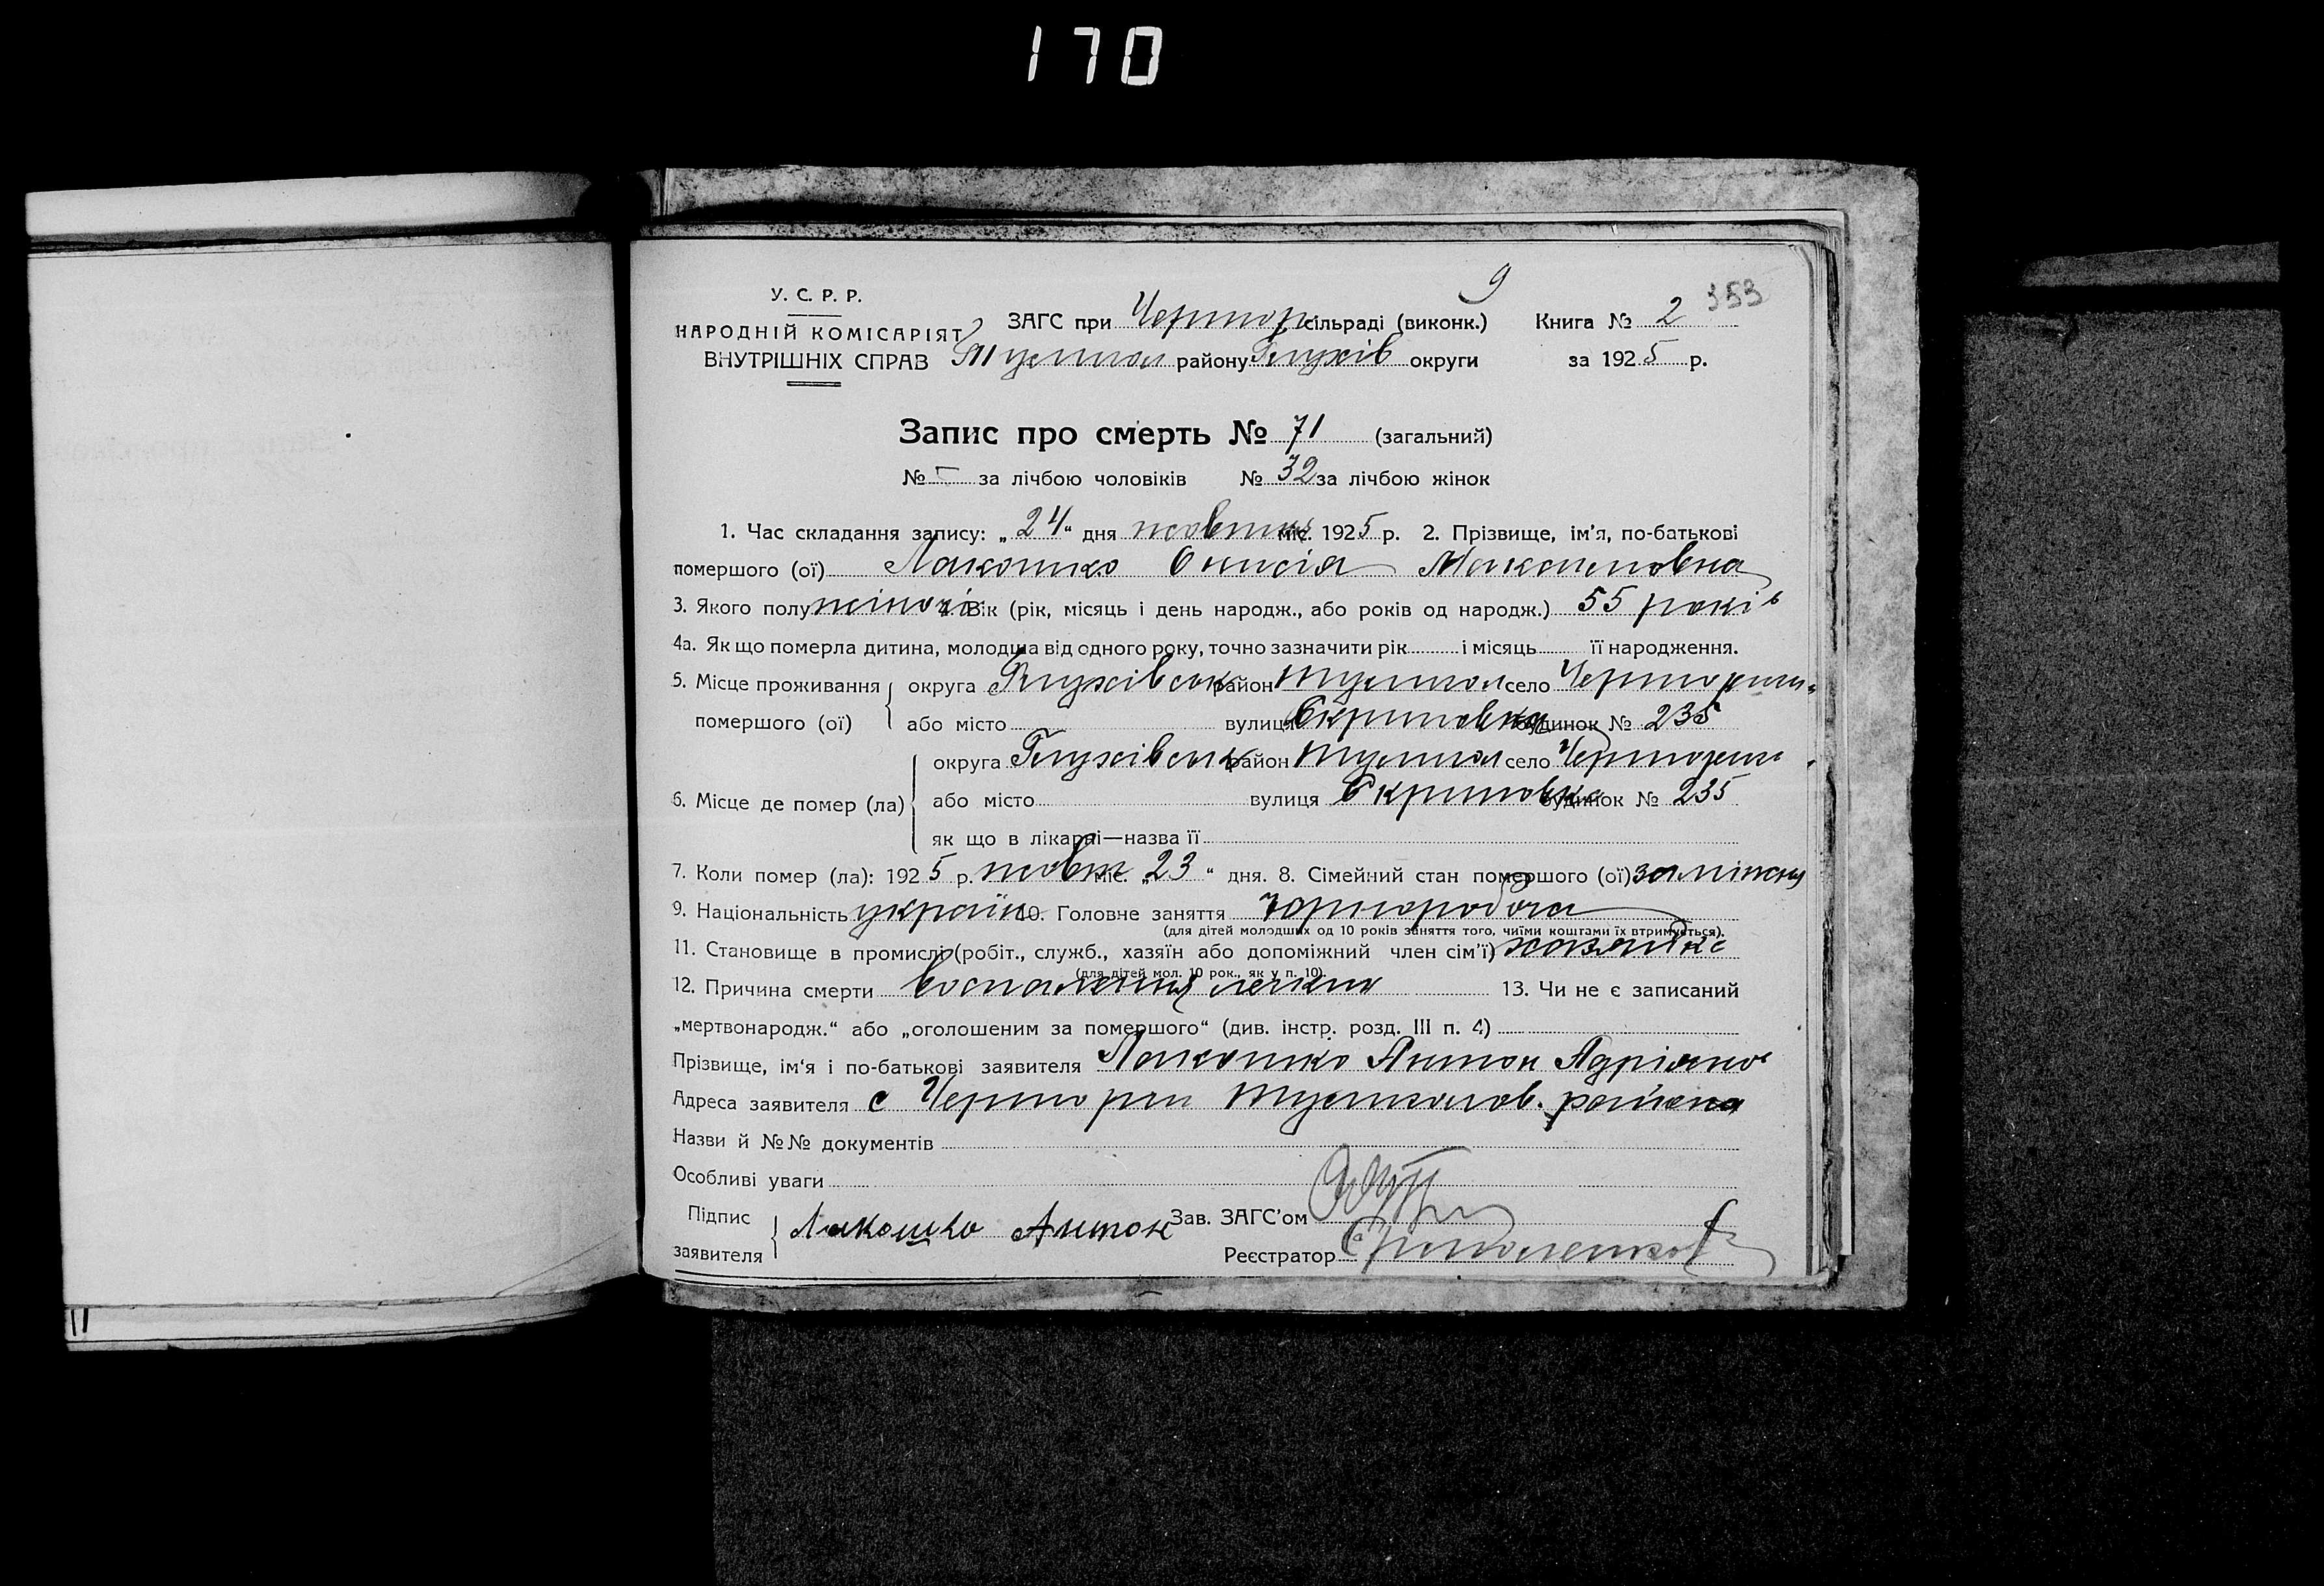 170
9
353
У. С. Р. Р.
НАРОДНІЙ КОМІСАРІЯТ
ВНУТРІШНІХ СПРАВ
ЗАГС при Чортор. сільраді (виконк.) Книга № 2
Тулигол району Глухів округи за 1925 р.
Запис про смерть № 71 (загальний)
№ - за лічбою чоловіків № 32 за лічбою жінок
1. Час складання запису: „24“ дня жовтня міс. 1925 р. 2. Прізвище, ім'я, по-батькові
помершого (ої) Лакошко Онисія Максимовна
3. Якого полу жіночі 4. Вік (рік, місяць і день народж., або років од народж.) 55 років
4а. Як що померла дитина, молодша від одного року, точно зазначити рік і місяць її народження.
5. Місце проживання округа Глухівськ район Тулигол село
помершого (ої) або місто вулиця будинок № 235
округа Глухівськ район Тулигол село
6. Місце де помер (ла) або місто вулиця будинок № 235
як що в лікарні—назва її
7. Коли помер (ла): 1925 р. жовт міс. „23“ дня. 8. Сімейний стан помершого (ої) заміжня
9. Національність україн 10. Головне заняття чорноробоча
(для дітей молодших од 10 років заняття того, чиїми коштами їх втримується).
11. Становище в промислі (робіт., служб., хазяїн або допоміжний член сім'ї) хазяйка
(для дітей мол. 10 рок., як у п. 10).
12. Причина смерти воспаления 13. Чи не є записаний
„мертвонародж.“ або „оголошеним за помершого“ (див. інстр. розд. III п. 4)
Прізвище, ім'я і по-батькові заявителя Лакошко Антон Адріянов
Адреса заявителя с района
Назви й №№ документів
Особливі уваги
Підпис заявителя Лакошко Антон Зав. ЗАГС'ом
Реєстратор